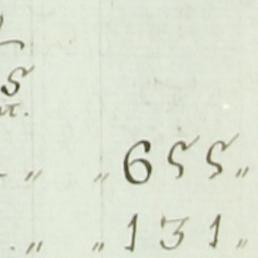 s
" " 655 "
" " 131 "